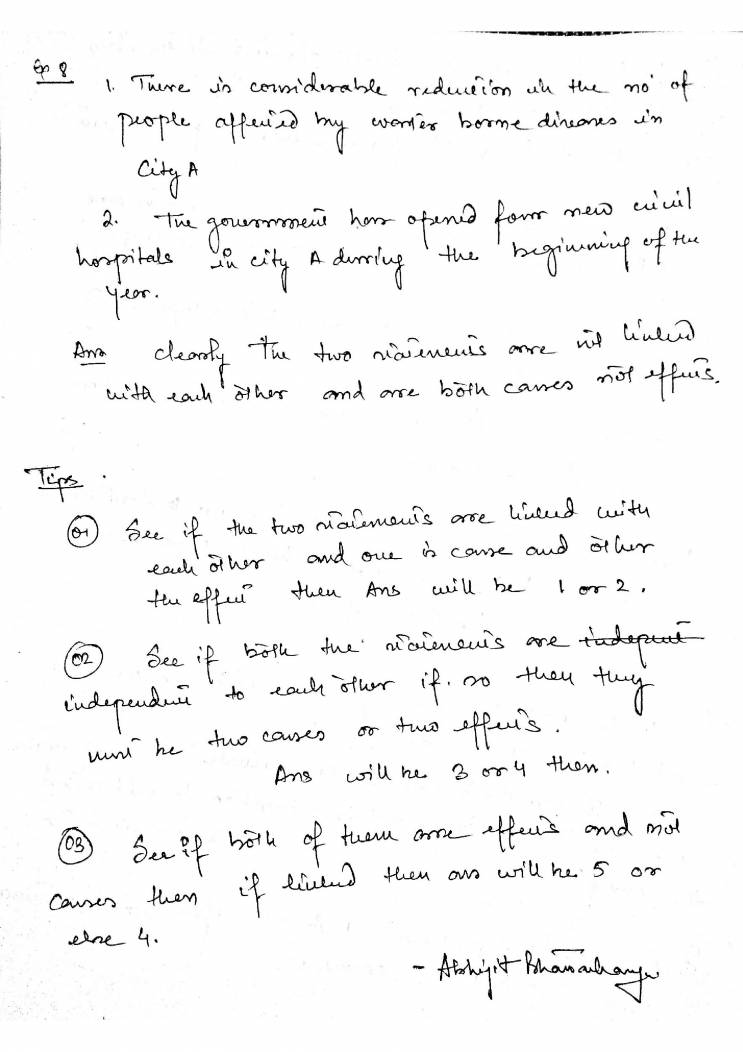 Ex 8
1. There is considerable reduction in the no. of
people affected by water borne diseases in
City A
2. The government has opened four new civil
hospitals in city A during the beginning of the
year.
Ans clearly The two statements are not linked
with each other and are both causes not effects.
Tips.
01 See if the two statements are linked with
each other and one is cause and other
the effect then Ans will be 1 or 2.
02 See if both the statements are indepent
independent to each other if so then they
must be two causes or two effects.
Ans will be 3 or 4 then.
03 See if both of them are effects and not
causes then if linked then ans will be 5 or
else 4.
- Abhijit Bhattacharyya